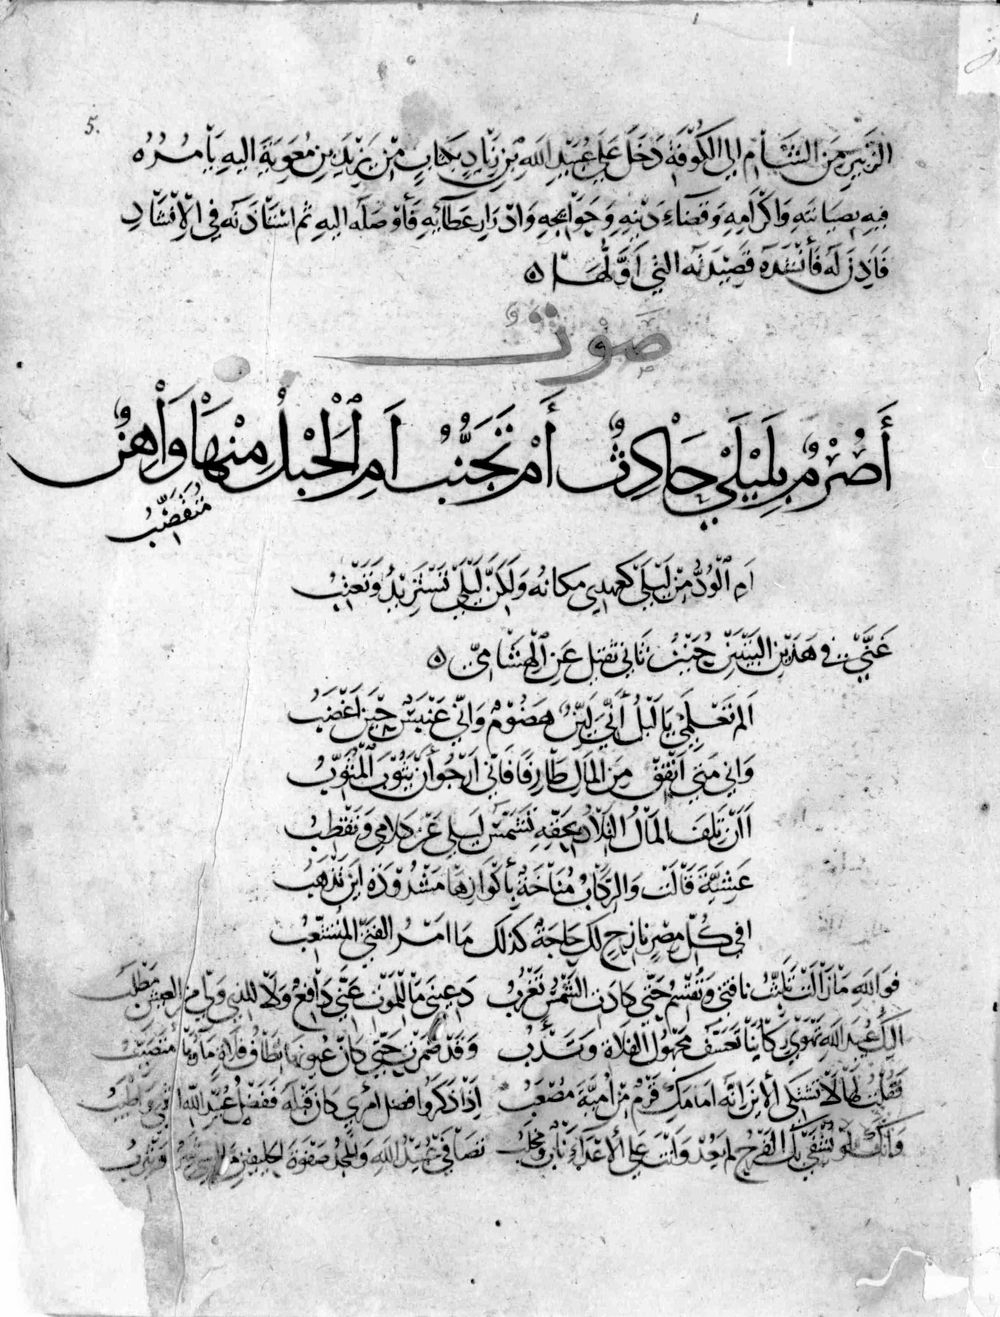 5.
الزبير من الشأم الى الكوفة دخل على عبيد الله بن زياد بكتاب من يزيد بن معوية اليه يأمره
فيه بصيانته واكرامه وقضاء دينه وحوائجه وادرار عطائه فأوصله اليه ثم استأذنه في الانشاد
فأذن له فأنشده قصيدته التي أوّلها ه
صوت
أَصُرْمٌ بِلَيْلَي حَادِثٌ أَمْ تَجَنُّبُ اَمِ اَلْحَبْلُ مِنْهَا وَاهِنٌ
مُتَقَضِّبُ
ام الودّ من ليلى كعهدي مكانه ولكنّ ليلى تستزيد وتعتب
غنّى في هذين البيتين حنين ثاني ثقيل عن الهشامى ه
الم تعلمي يا ليل أنّي ليّن هضوم وانّي عنبس حين اغضب
واني متى انفق من المال طارفا فاني ارجو أن يثوب المثوّب
أأن تلف المال التلاد بحقّه تشمّس ليلى عن كلامي وتقطب
عشيّة قالت والركاب مناخة بأكوارها مشدودة اين تذهب
افي كلّ مصر نازح لك حاجة كذلك ما امر الفتى المتشعّب
فوالله ما زالت تلبّث ناقتي وتقسم حتّى كادت الشمس تغرب دعيني ما للموت عنّي دافع ولا للذي ولّى من العيش مطلب
اليك عبيد الله تهوي ركابنا تعسّف مجهول الفلاة وتدأب وقد ضمرت حتّى كأنّ عيونها نطاف فلاة ماؤها متصبّب
فقلت لها لا تشتكي الاين انّه امامك قرم من أميّة مصعب اذا ذكروا فضل امرئ كان قبله ففضل عبيد الله
وانّك لو يشفى بك القرح لم يعد وانت على الاعداء ناب ومخلب تصافى عبيد الله والمجد صفوة الحليفين